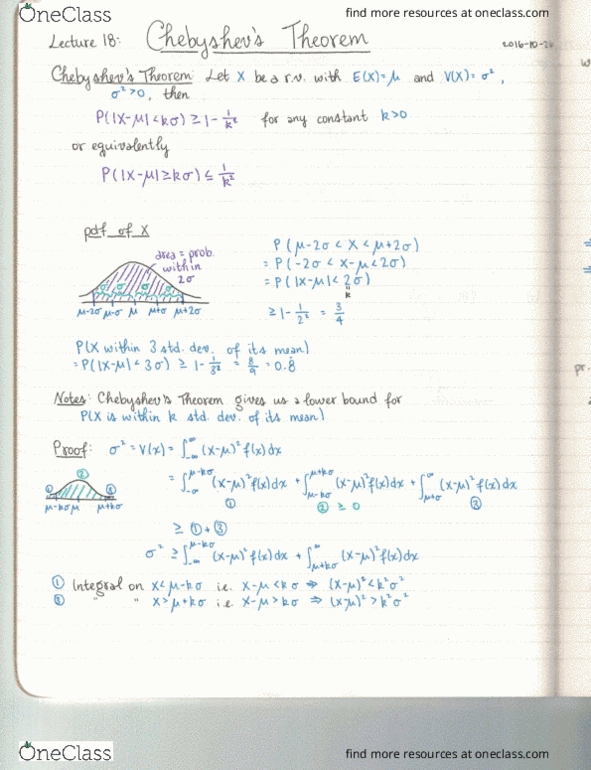 OneClass
find more resources at oneclass.com
Lecture 18: Chebyshev's Theorem
2016-10-26
Chebyshev's Theorem: Let X be a r.v. with E(X)=μ and V(X)=σ²,
σ²>0, then
P(|X-μ|<kσ) ≥ 1 - 1/k² for any constant k>0
or equivalently
P(|X-μ|≥kσ) ≤ 1/k²
pdf of X
area = prob.
within
2σ
σ σ σ σ
μ-2σ μ-σ μ μ+σ μ+2σ
P(μ-2σ < X < μ+2σ)
= P(-2σ < X-μ < 2σ)
= P(|X-μ| < 2σ)
"
k
≥ 1 - 1/2² = 3/4
P(X within 3 std. dev. of its mean)
= P(|X-μ|<3σ) ≥ 1 - 1/3² = 8/9 = 0.8̇
Notes: Chebyshev's Theorem gives us a lower bound for
P(X is within k std. dev. of its mean)
Proof: σ² = V(X) = ∫_-∞^∞ (x-μ)² f(x)dx
= ∫_-∞^μ-kσ (x-μ)² f(x)dx + ∫_μ-kσ^μ+kσ (x-μ)² f(x)dx + ∫_μ+σ^∞ (x-μ)² f(x)dx
① ② ≥ 0 ③
① ② ③
μ-kσ μ μ+kσ
≥ ① + ③
σ² ≥ ∫_-∞^μ-kσ (x-μ)² f(x)dx + ∫_μ+kσ^∞ (x-μ)² f(x)dx
① Integral on x<μ-kσ i.e. x-μ<kσ ⇒ (x-μ)²<k²σ²
③ " " x>μ+kσ i.e. x-μ>kσ ⇒ (x-μ)²>k²σ²
pr.
OneClass
find more resources at oneclass.com